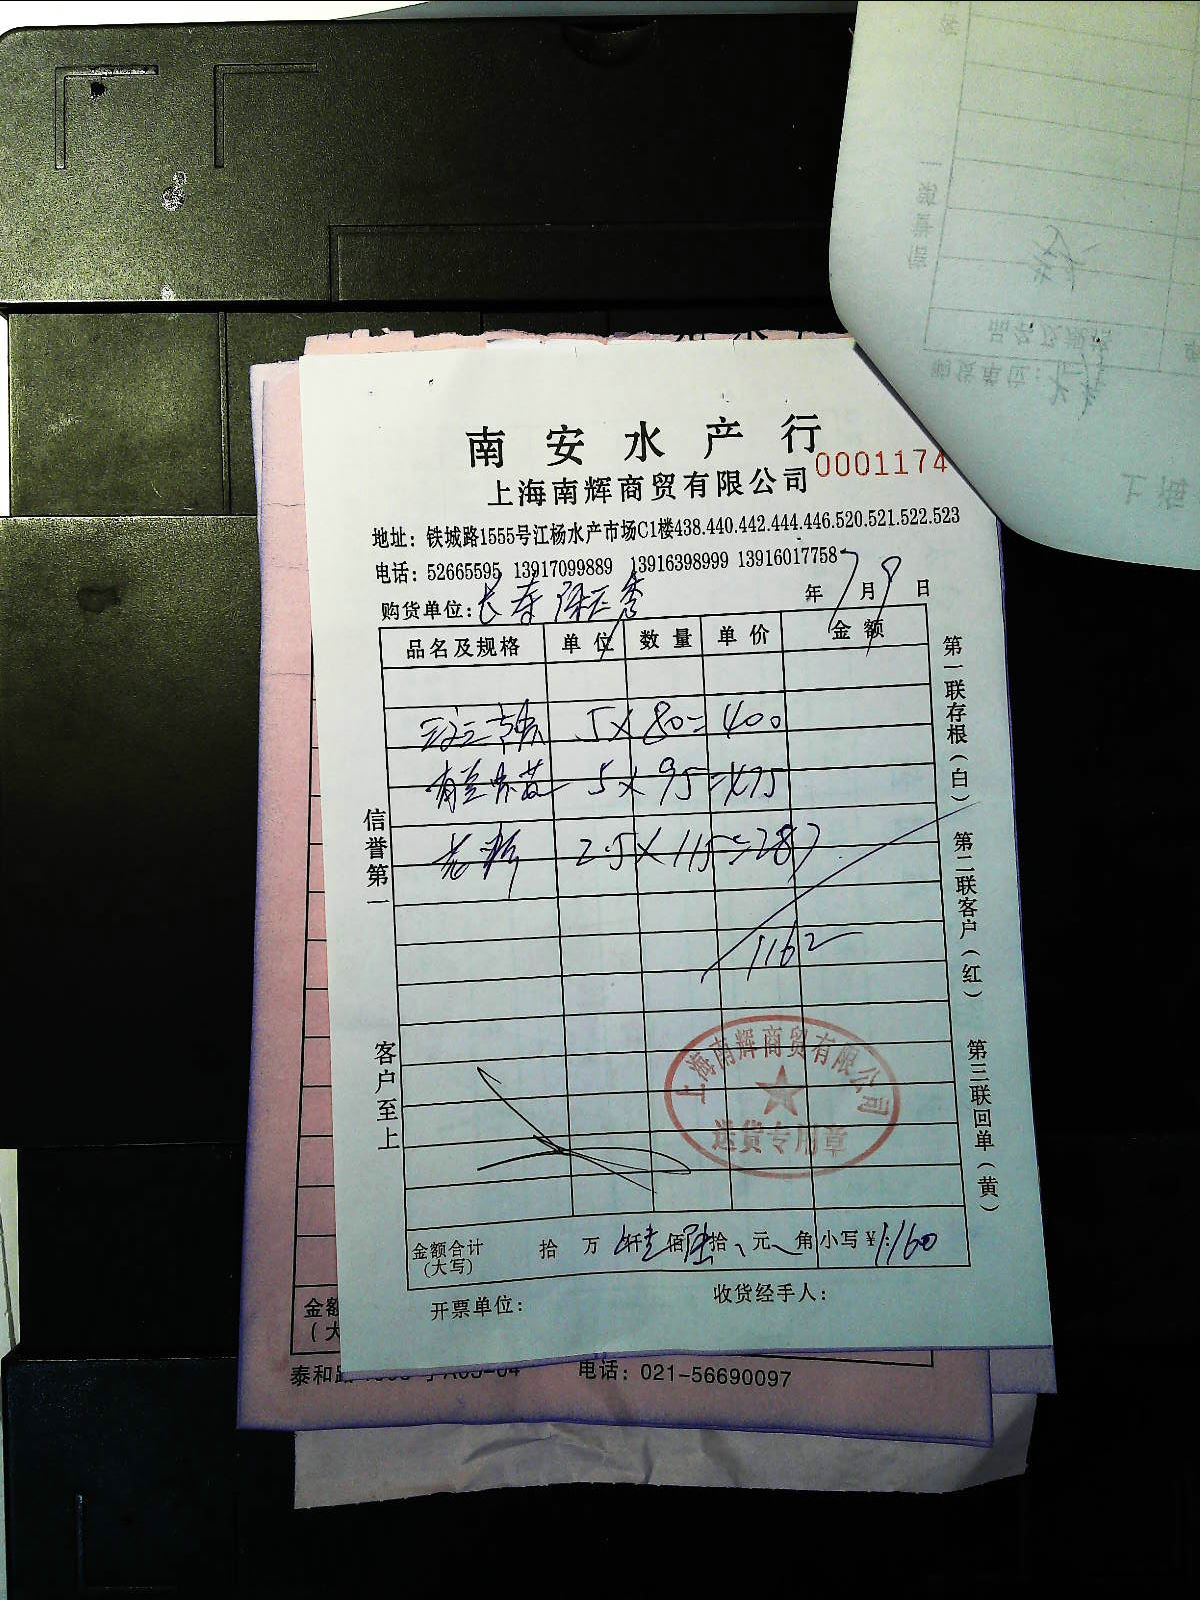 南安水产行
上海南辉商贸有限公司 0001174
地址：铁城路1555号江杨水产市场C1楼438.440.442.444.446.520.521.522.523
电话：52665595 13917099889 13916398999 13916017758
购货单位：长寿 年7月9日
品名及规格 单位 数量 单价 金额
5×80=400
5×95=475
2.5×115=287
1162
信誉第一
客户至上
第一联存根（白）
第二联客户（红）
第三联回单（黄）
上海南辉商贸有限公司
送货专用章
金额合计 拾 万 仟壹佰陆拾 元 角 小写¥：1160
（大写）
开票单位： 收货经手人：
金额
（大
泰和路 电话：021-56690097
品名及规格
购货单位：
上海